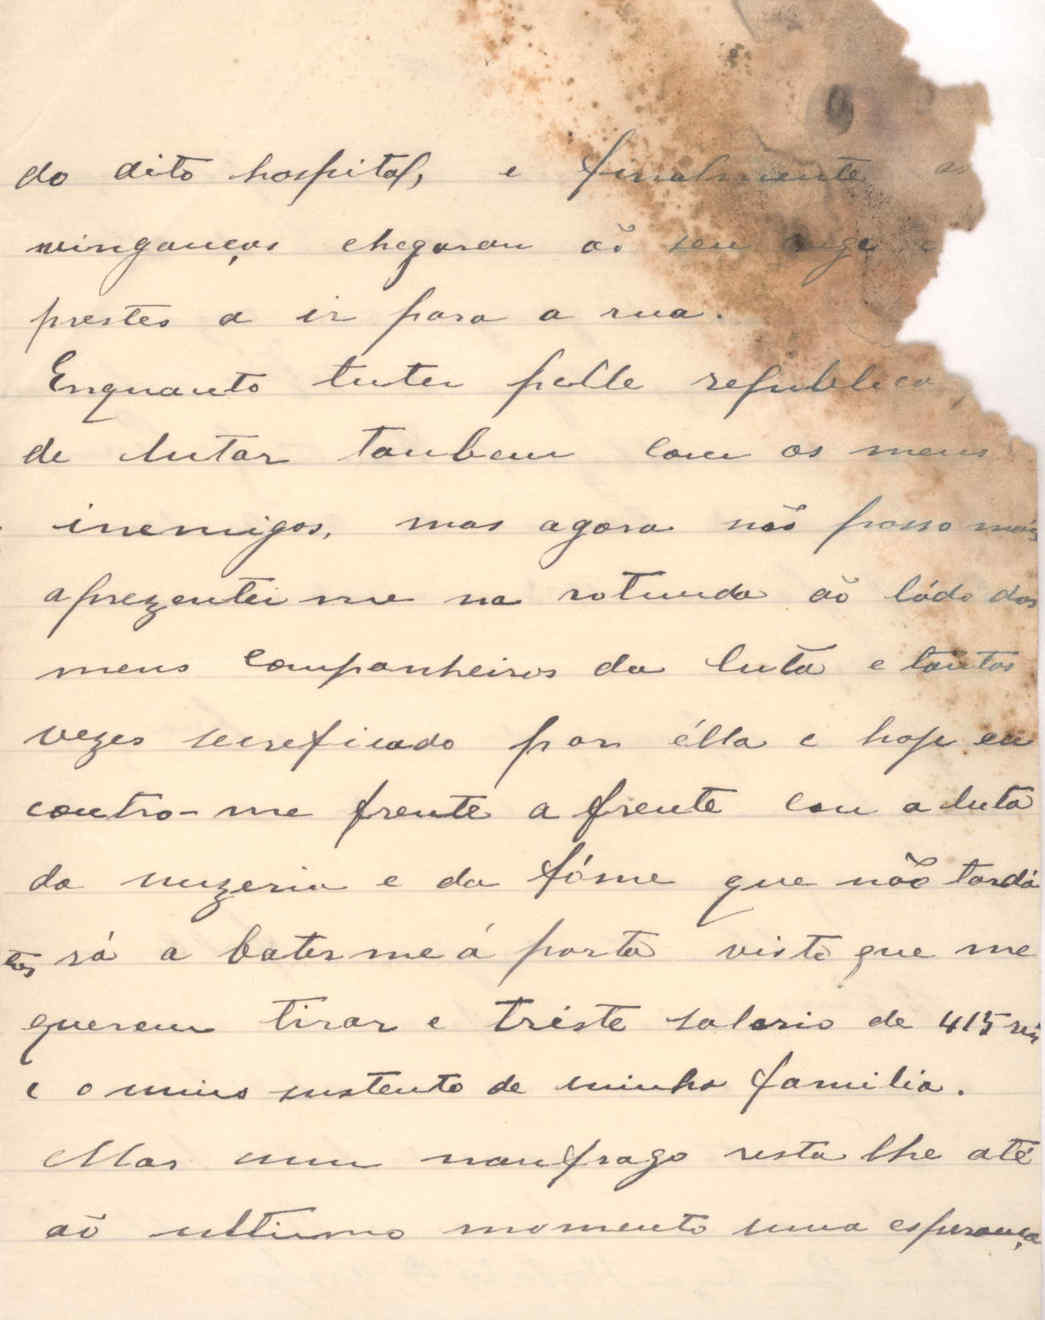 do dito hospital, e finalmente as
vinganças chegaram aõ seu auge e
prestes a ir para a rua.
Enquanto lutei pella republica,
de lutar tanbem com os meus
inemigos, mas agora não posso mais
aprezentei me na rotunda aõ ládo dos
meus companheiros da luta e tantas
vezes secreficado por élla e hoje en
contro-me frente a frente com a luta
da mizeria e da fóme que não tardá
rá a bater me á porta visto que me
querem tirar e triste salario de 415 reis
e o unico sustento de minha familia.
Mas um naufrago resta lhe até
aõ ultimo momento uma esperança